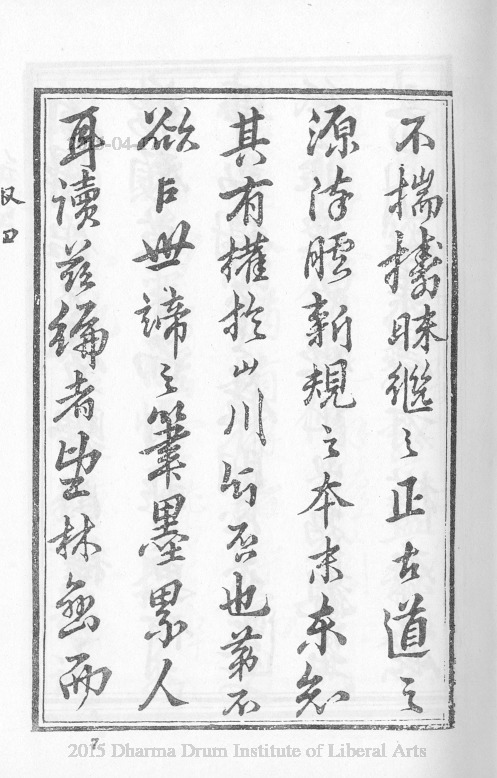 不揣擣昧繼之正古道之
源臚新規之本末未
其有權於山川否也第不
欲以世諦之筆墨累人
耳讀茲編者坐林巒而
7
2015 Dharma Drum Institute of Liberal Arts